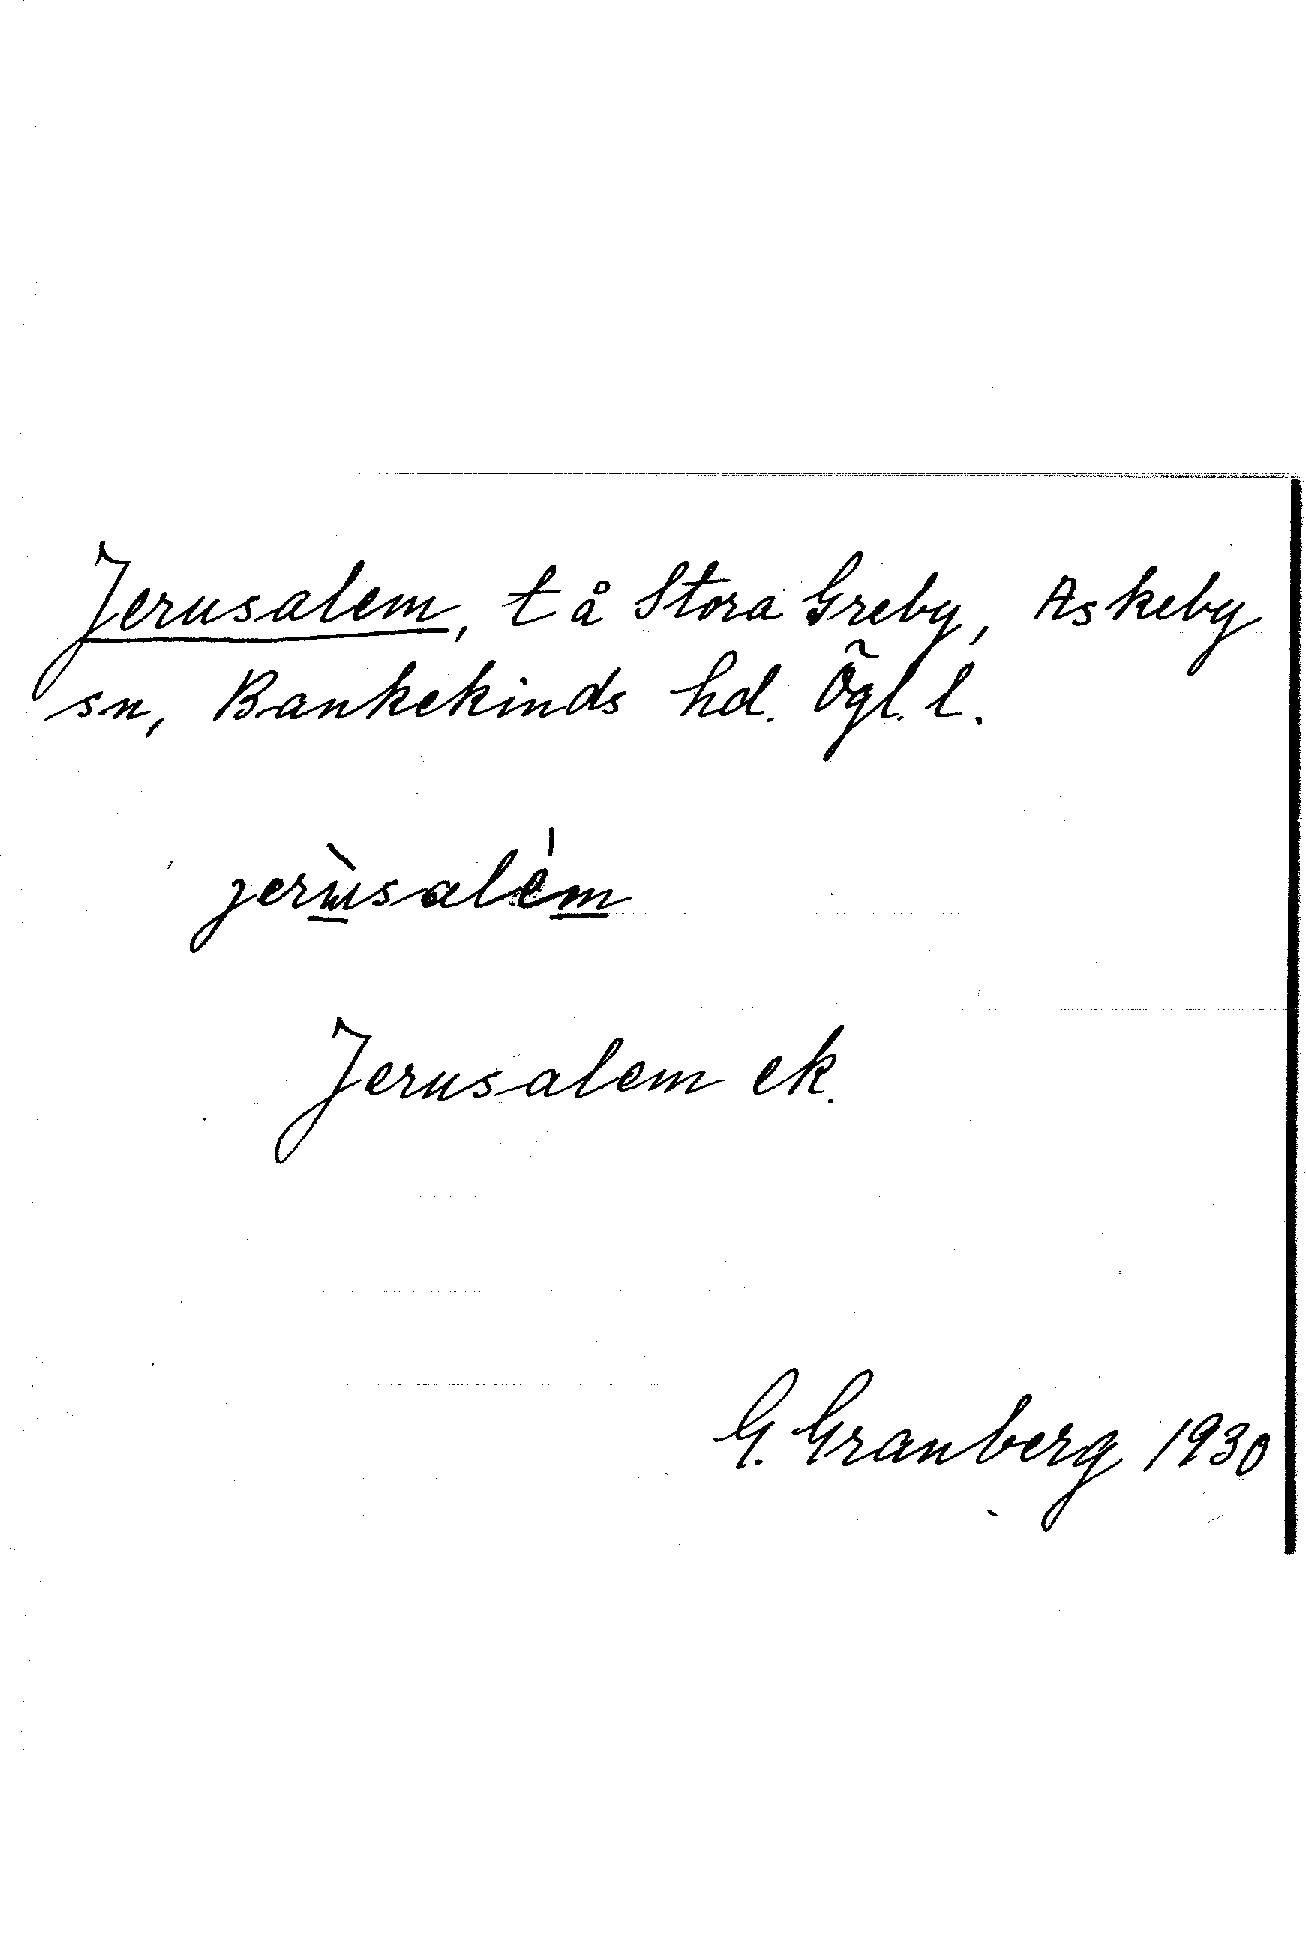 Jerusalem, t å Stora Greby, Askeby
sn, Bankekinds hd. Ögl. l.
jerùsalém
Jerusalem ek.
G. Granberg 1930